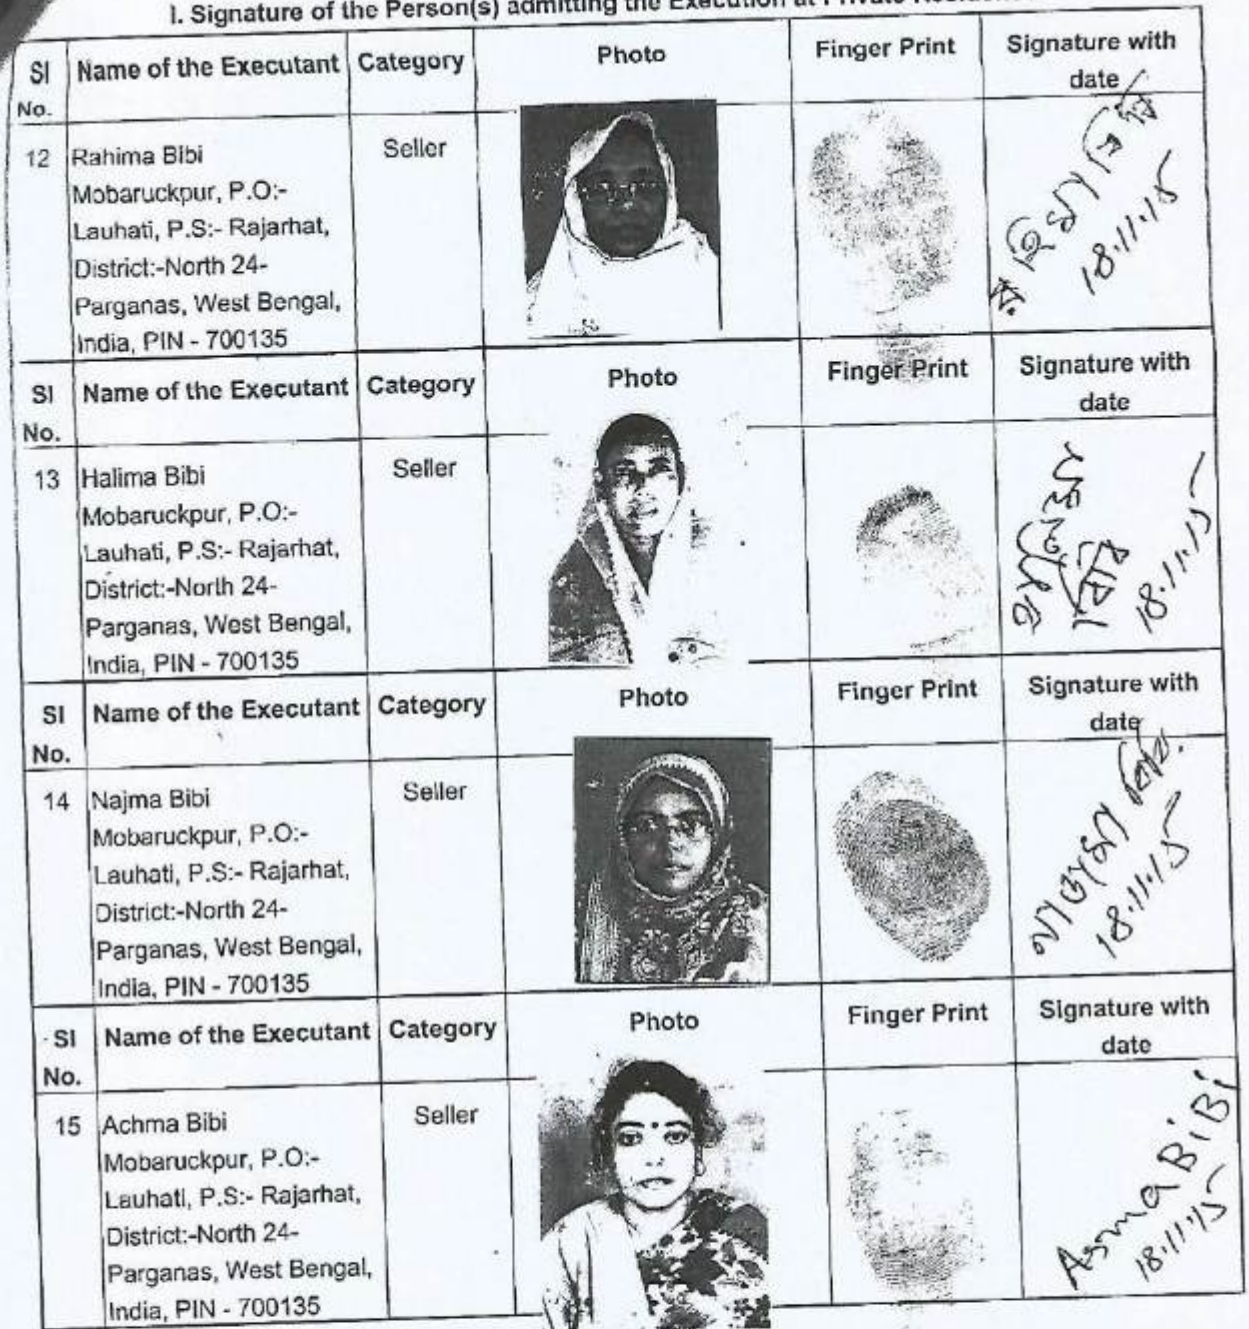 I. Signature of the Person(s) admitting the Execution at Private
SI No. Name of the Executant Category Photo Finger Print Signature with date
12 Rahima Bibi Seller
Mobaruckpur, P.O:-
Lauhati, P.S:- Rajarhat,
District:-North 24-
Parganas, West Bengal,
India, PIN - 700135
18.11.15
SI No. Name of the Executant Category Photo Finger Print Signature with date
13 Halima Bibi Seller
Mobaruckpur, P.O:-
Lauhati, P.S:- Rajarhat,
District:-North 24-
Parganas, West Bengal,
India, PIN - 700135
18.11.15
SI No. Name of the Executant Category Photo Finger Print Signature with date
14 Najma Bibi Seller
Mobaruckpur, P.O:-
Lauhati, P.S:- Rajarhat,
District:-North 24-
Parganas, West Bengal,
India, PIN - 700135
18.11.15
SI No. Name of the Executant Category Photo Finger Print Signature with date
15 Achma Bibi Seller
Mobaruckpur, P.O:-
Lauhati, P.S:- Rajarhat,
District:-North 24-
Parganas, West Bengal,
India, PIN - 700135
Asma BiBi
18.11.15